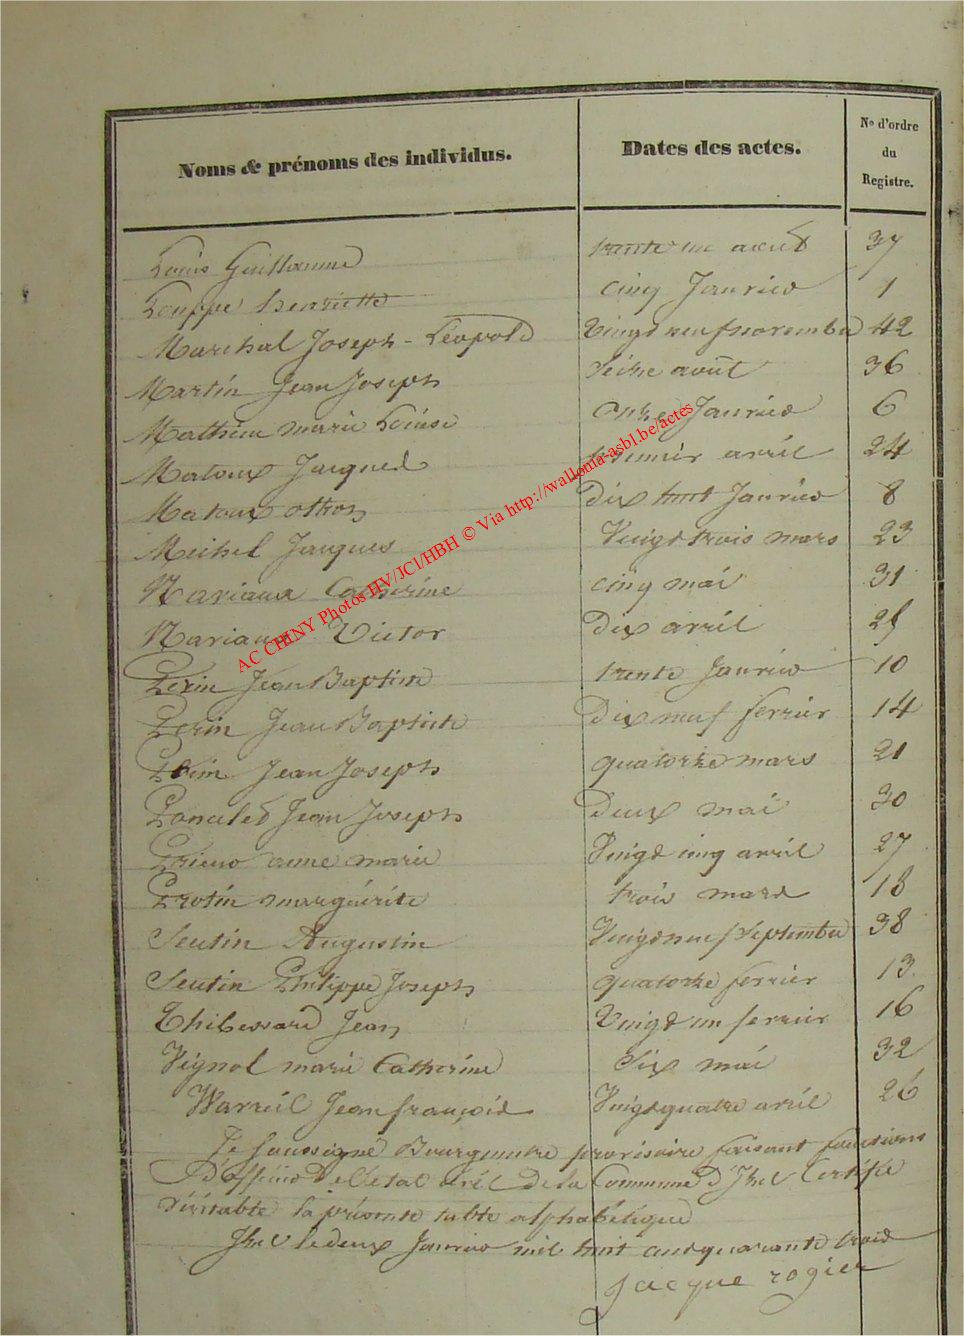 Noms & prénoms des individus. Dates des actes. No d'ordre du Registre.
Louis Guillaume trente un août 37
Louppe henriette cinq Janvier 1
Marchal Joseph-Léopold Vingt neuf novembre 42
Martin Jean Joseph Seize août 36
Mathieu marie Louise onze Janvier 6
Matoux Jacques premier avril 24
Matoux othon Dix huit Janvier 8
Michel Jacques Vingt trois mars 23
Nariaux Catherine cinq mai 31
Nariaux Victor Dix avril 25
Perin Jean Baptiste trente Janvier 10
Perin Jean Baptiste Dix neuf fevrier 14
Jean Joseph quatorze mars 21
Poncelet Jean Joseph Deux mai 30
anne marie Vingt cinq avril 27
Protin marguérite trois mars 18
Seutin Augustin Vingt neuf Septembre 38
Seutin Philippe Joseph quatorze fevrier 13
Thibessard Jean Vingt un fevrier 16
Vignol marie Catherine Six mai 32
Jean françois Vingt quatre avril 26
Je Soussigné Bourgmestre provisoire faisant fonctions
D'officier De l'état civil De la Commune D'Izel Certifie
véritable la présente table alphabétique
Izel le deux Janvier mil huit cent quarante trois
Jacque rogier
AC CHINY Photos HV/JCl/HBH © Via http://wallonia-asbl.be/actes